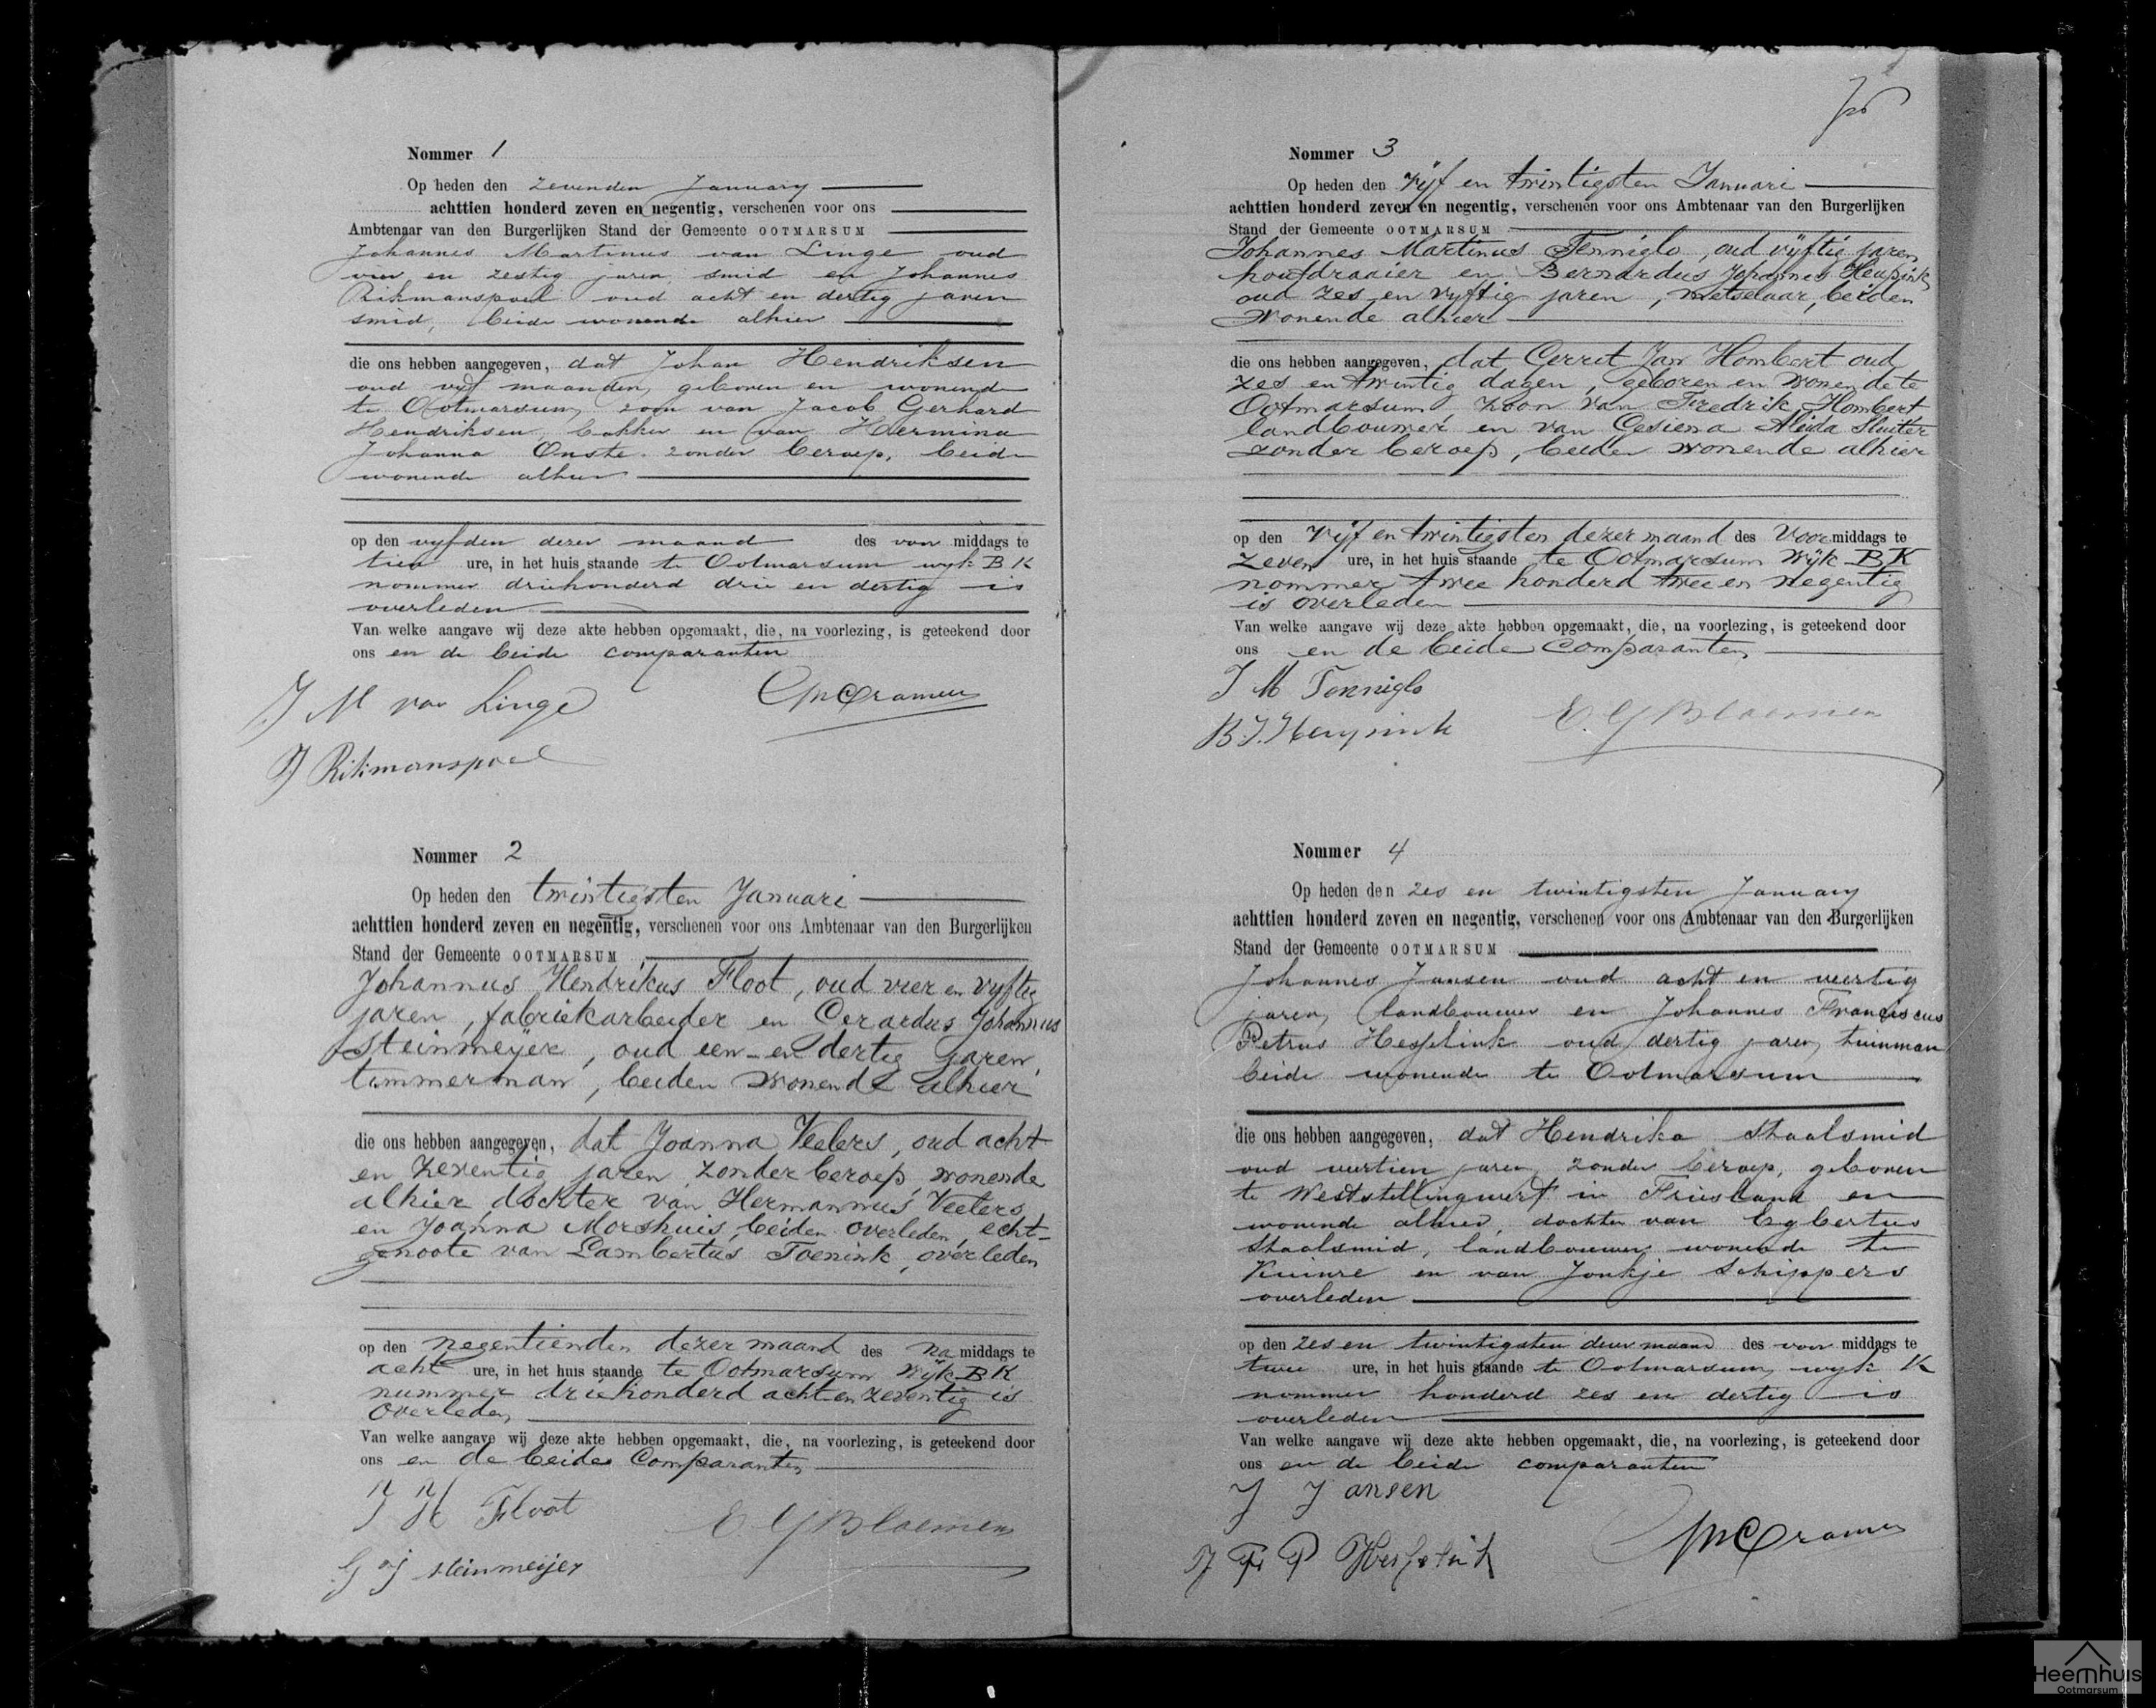 Nommer 1
Op heden den zevenden January
achttien honderd zeven en negentig, verschenen voor ons
Ambtenaar van den Burgerlijken Stand der Gemeente OOTMARSUM
Johannes Martinus van Linge oud
vier en zestig jaren smid en Johannes
Rikmanspoel oud acht en dertig jaren
smid, beide wonende alhier
die ons hebben aangegeven, dat Johan Hendriksen
oud vijf maanden, geboren en wonend
te Ootmarsum, zoon van Jacob Gerhard
Hendriksen, bakker en van Hermina
Johanna Onste zonder beroep, beide
wonende alhier
op den vyfden dezer maand des voor middags te
tien ure, in het huis staande te Ootmarsum wyk B K
nommer driehonderd drie en dertig is
overleden
Van welke aangave wij deze akte hebben opgemaakt, die, na voorlezing, is geteekend door
ons en de beide comparanten
J M van Linge
CMCramer
J Rikmanspoel
Nommer 2
Op heden den twintigsten Januari
achttien honderd zeven en negentig, verschenen voor ons Ambtenaar van den Burgerlijken
Stand der Gemeente OOTMARSUM
Johannus Hendrikus Floot, oud vier en vyftig
jaren, fabriekarbeider en Gerardus Johannus
Steinmeijer, oud een en dertig jaren,
timmerman, beiden wonende alhier
die ons hebben aangegeven, dat Joanna Veelers, oud acht
en zeventig jaren, zonder beroep, wonende
alhier, dochter van Hermannus Veelers
en Joanna Morshuis, beiden overleden, echt-
genoote van Lambertus Toenink, overleden
op den negentienden dezer maand des na middags te
acht ure, in het huis staande te Ootmarsum Wijk B K
nummer driehonderd acht en zeventig is
overleden
Van welke aangave wij deze akte hebben opgemaakt, die, na voorlezing, is geteekend door
ons en de beide Comparanten
J H Floot
E G Bloemen
G J Steinmeijer
Nommer 3
Op heden den Vijf en twintigsten Januari
achttien honderd zeven en negentig, verschenen voor ons Ambtenaar van den Burgerlijken
Stand der Gemeente OOTMARSUM
Johannes Martinus Tenniglo, oud vijftig jaren
houtdraaier en Bernardus Johannes Heupink
oud zes en vyftig jaren, metselaar, beiden
wonende alhier
die ons hebben aangegeven, dat Gerrit Jan Hombert oud
zes en twintig dagen, geboren en wonende te
Ootmarsum zoon van Fredrik Hombert
landbouwer en van Gesiena Aleida Sluiter
zonder beroep, beiden wonende alhier
op den Vijf en twintigsten dezer maand des Voor middags te
zeven ure, in het huis staande te Ootmarsum Wijk B K
nommer twee honderd twee en negentig
is overleden
Van welke aangave wij deze akte hebben opgemaakt, die, na voorlezing, is geteekend door
ons en de beide Comparanten
J M Tenniglo
B. J. Heupink
E. G Bloemen
Nommer 4
Op heden den zes en twintigsten January
achttien honderd zeven en negentig, verschenen voor ons Ambtenaar van den Burgerlijken
Stand der Gemeente OOTMARSUM
Johannes Jansen oud acht en veertig
jaren, landbouwer en Johannes Franciscus
Petrus Hesselink oud dertig jaren, tuinman
beide wonende te Ootmarsum
die ons hebben aangegeven, dat Hendrika Staalsmid
oud veertien jaren, zonder beroep, geboren
te Weststellingwerf in Friesland en
wonende alhier, dochter van Egbertus
Staalsmid, landbouwer, wonende te
Kuinre en van Jonkje Schippers
overleden
op den zes en twintigsten dezer maand des voor middags te
twee ure, in het huis staande te Ootmarsum, wyk K
nommer honderd zes en dertig is
overleden
Van welke aangave wij deze akte hebben opgemaakt, die, na voorlezing, is geteekend door
ons en de beide comparanten
J Jansen
CMCramer
J F P Hesselink
Heemhuis
Ootmarsum